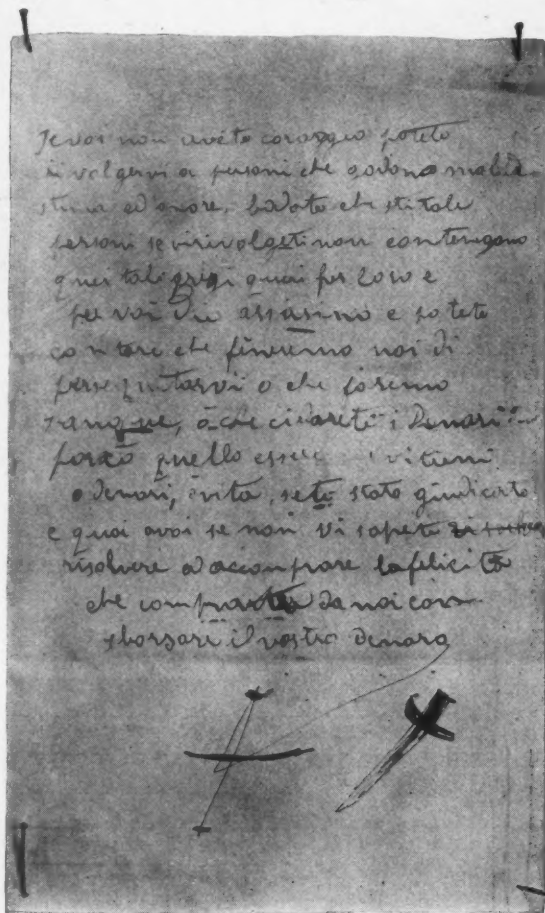 Se voi non avete coraggio potete
rivolgervi a personi che godono molta
stima ed onore, badate che sti tali
personi se vi rivolgeti non contengano
quei tali grigi guai per loro e
per voi Dio assasino e potete
contare che fineremo noi di
perseguitarvi o che faremo
sangue, o che ci darete i Denari
forato quello essere vi tieni
o denari, o vita, sete stato giudicato
e guai a voi se non vi sapete
risolvere ad accomprare la felicità
che comprar da noi con
sborsari il vostro Denaro